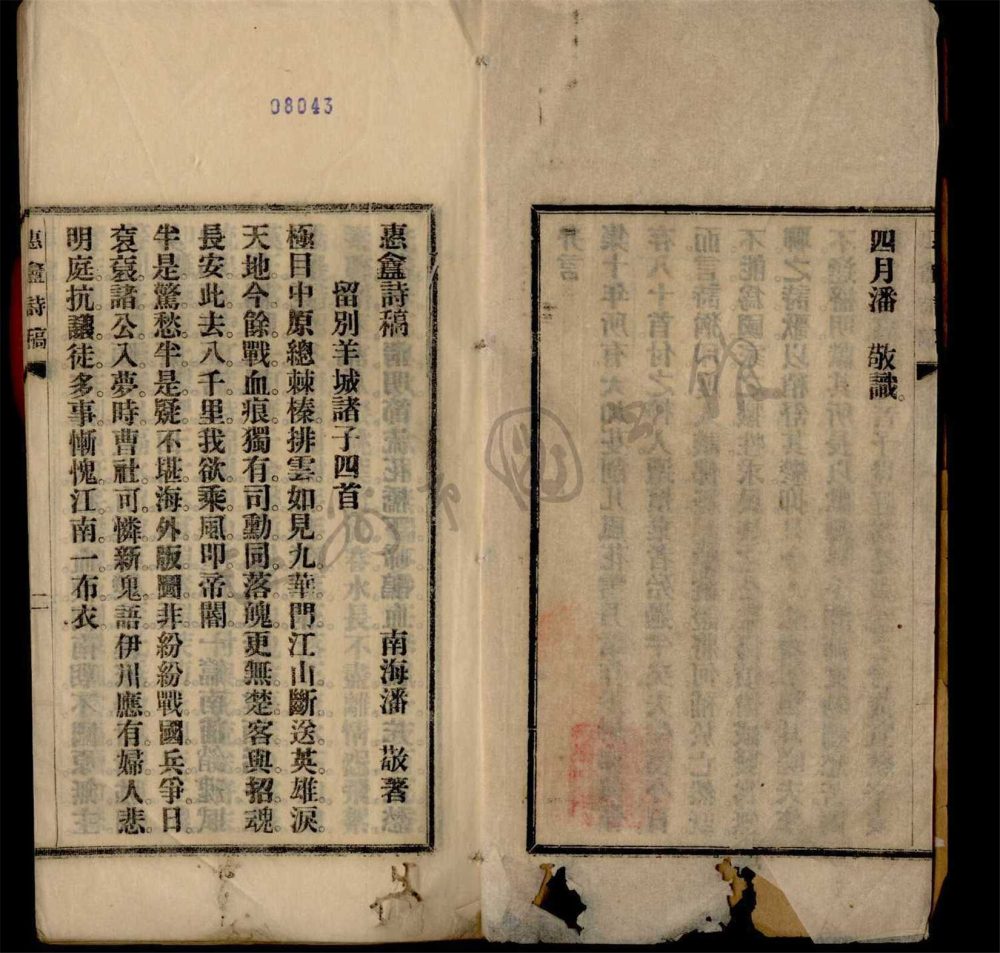 四月潘 敬識。
08043
惪盦詩稿 南海潘 敬著
留別羊城諸子四首
極目中原總棘榛。排雲如見九華門。江山斷送英雄淚。
天地今餘戰血痕。獨有司勳同落魄。更無楚客與招魂。
長安此去八千里。我欲乘風叩帝閽。
半是驚愁半是疑。不堪海外版圖非。紛紛戰國兵爭日。
袞袞諸公入夢時。曹社可憐新鬼語。伊川應有婦人悲。
明庭抗議徒多事。慚愧江南一布衣。
惪盦詩稿 一